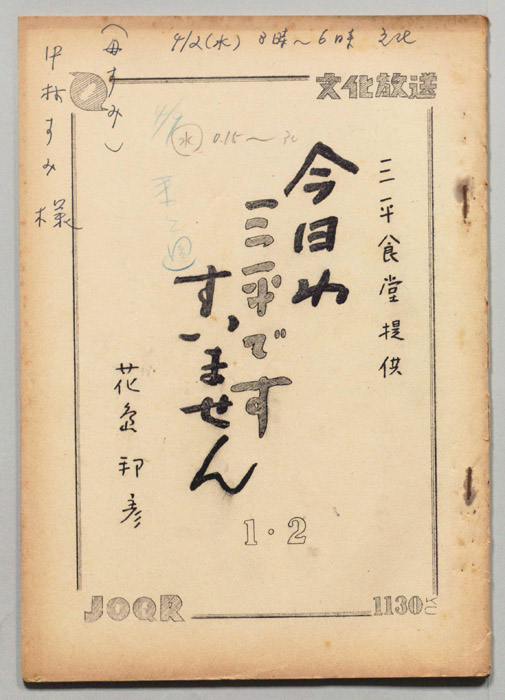 4/2(水) 3時〜6時 文化
(母すみ)
中村すみ様
文化放送
(水) 0.15〜
三平食堂提供
今日わ
三平です
すいません
1・2
花島邦彦
JOQR
1130KC